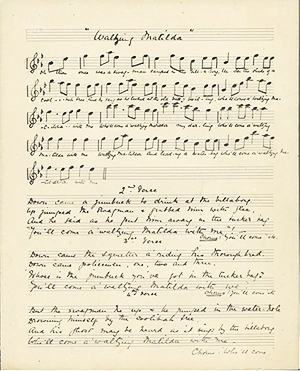 "Waltzing Matilda"
Oh there once was a swagman camped in the billabong
Under the shade of a
Coolibah tree
a waltzing
Matilda with me
who'll come a waltzing
Matilda with me waltzing Matilda and leading a water-bag who'll come a waltzing
Matilda with me
2nd Verse
Down came a jumbuck to drink at the billabong
Up jumped the swagman & grabbed him with glee
And he said as he put him away in the tucker bag
"You'll come a waltzing Matilda with me"
Chorus: You'll come &c
3rd Verse
Down came the squatter a riding his thoroughbred
Down came policemen, one, two and three
Whose is the jumbuck you've got in the tucker bag?
You'll come a waltzing Matilda with we
Chorus: You'll come &c
4th Verse
But the swagman he up & he jumped in the water-hole
Drowning himself by the coolibah tree
And his ghost may be heard as it sings by the billabong
Who'll come a waltzing Matilda with me
Chorus: Who'll come